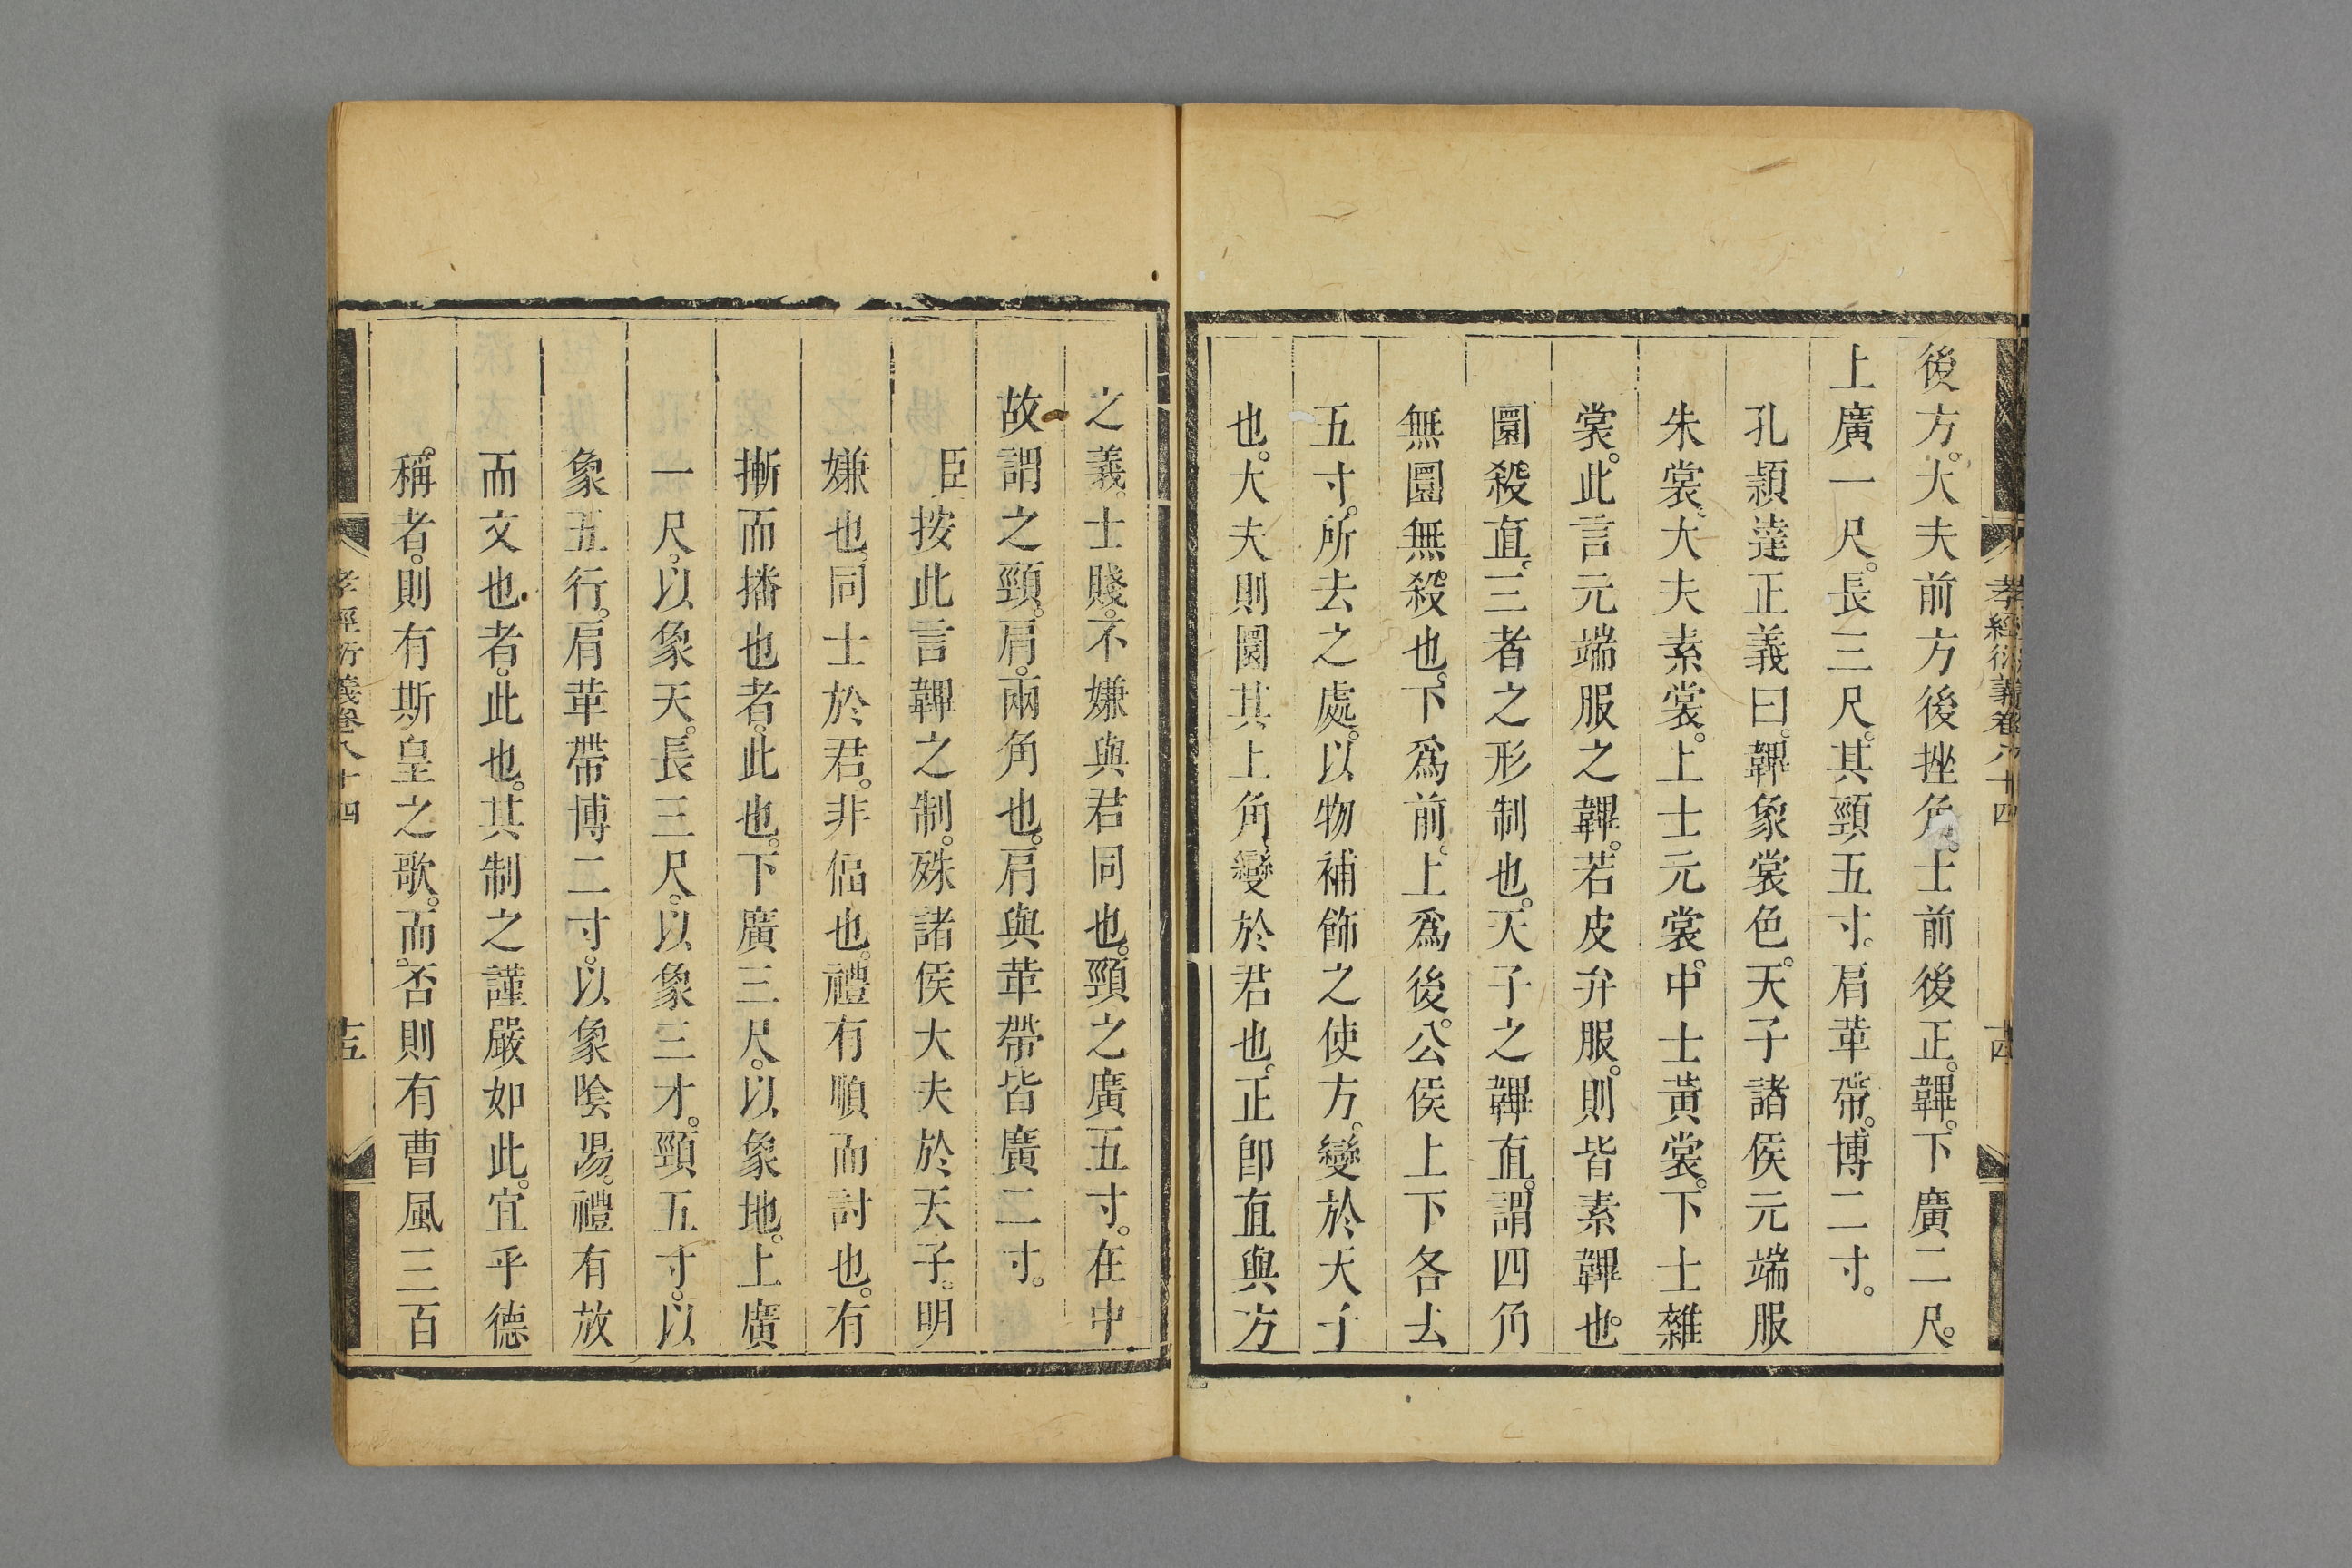 孝經衍義卷八十四
十四
後方。大夫前方後挫角。士前後正。韠。下廣二尺。
上廣一尺。長三尺。其頸五寸。肩革帶。博二寸。
孔穎達正義曰。韠象裳色。天子諸侯元端服
朱裳。大夫素裳。上士元裳。中士黃裳。下士雜
裳。此言元端服之韠。若皮弁服。則皆素韠也。
圜殺直。三者之形制也。天子之韠直。謂四角
無圜無殺也。下爲前。上爲後。公侯上下各去
五寸。所去之處。以物補飾之使方。變於天子
也。大夫則圜其上角。變於君也。正卽直與方
之義。士賤。不嫌與君同也。頸之廣五寸。在中
故謂之頸。肩。兩角也。肩與革帶皆廣二寸。
臣按此言韠之制。殊諸侯大夫於天子。明
嫌也。同士於君。非偪也。禮有順而討也。有
摲而播也者。此也。下廣三尺。以象地。上廣
一尺。以象天。長三尺。以象三才。頸五寸。以
象五行。肩革帶博二寸。以象陰陽。禮有放
而文也者。此也。其制之謹嚴如此。宜乎德
稱者。則有斯皇之歌。而否則有曹風三百
孝經衍義卷八十四
十五